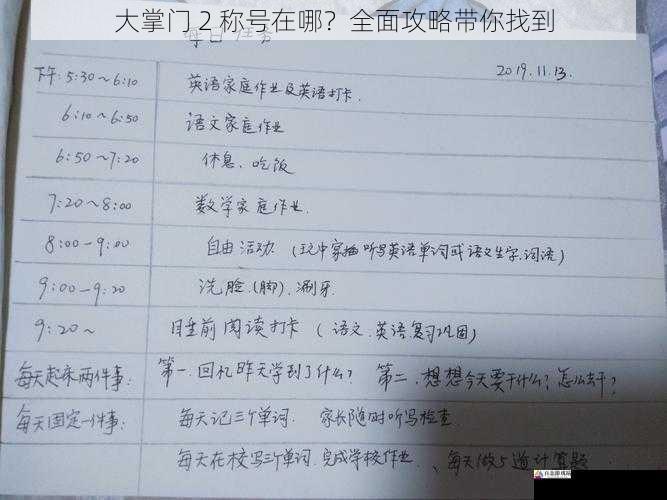 大掌门 2 称号在哪？全面攻略带你找到
每日任务
2019.11.13.
下午: 5:30~6:10 英语家庭作业及英语打卡.
6:10~6:50 语文家庭作业
6:50~7:20 休息、吃饭
7:20~8:00 数学家庭作业.
8:00-9:00 自由活动 (玩中穿插听写英语单词或语文生字.词语)
9:00-9:20 洗脸.(脚).涮牙.
9:20~ 睡前阅读打卡 (语文.英语复习巩固)
每天起床两件事: 第一.回忆昨天学到了什么? 第二.想想今天要干什么?怎么去干?
每天固定一件事: 每天记三个单词. 家长随时听写检查.
每天在校写三个单词.完成学校作业、每天做5道计算题